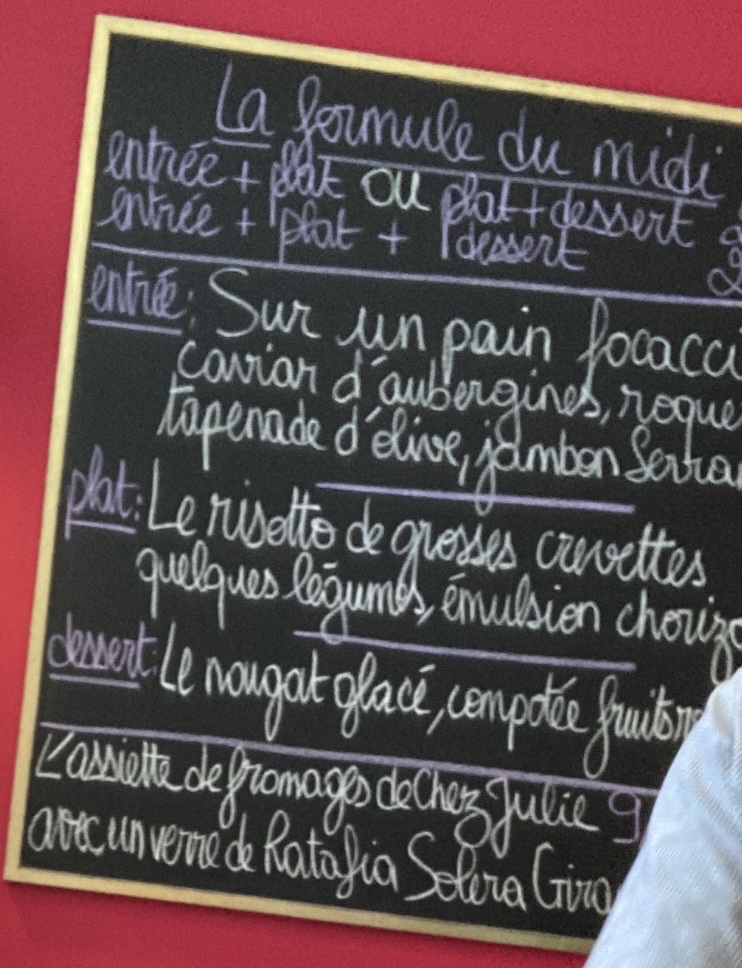 La formule du midi
entrée + plat ou plat + dessert
entrée + plat + dessert
entrée: Sur un pain focacci
caviar d'aubergines, roque
tapenade d'olive, jambon Serra
plat: Le risotto de grosses crevettes
quelques légumes, émulsion chorizo
dessert: Le nougat glacé, compotée fruits
L'assiette de fromages de Chez Julie 9
avec un verre de Ratafia Solera Gira